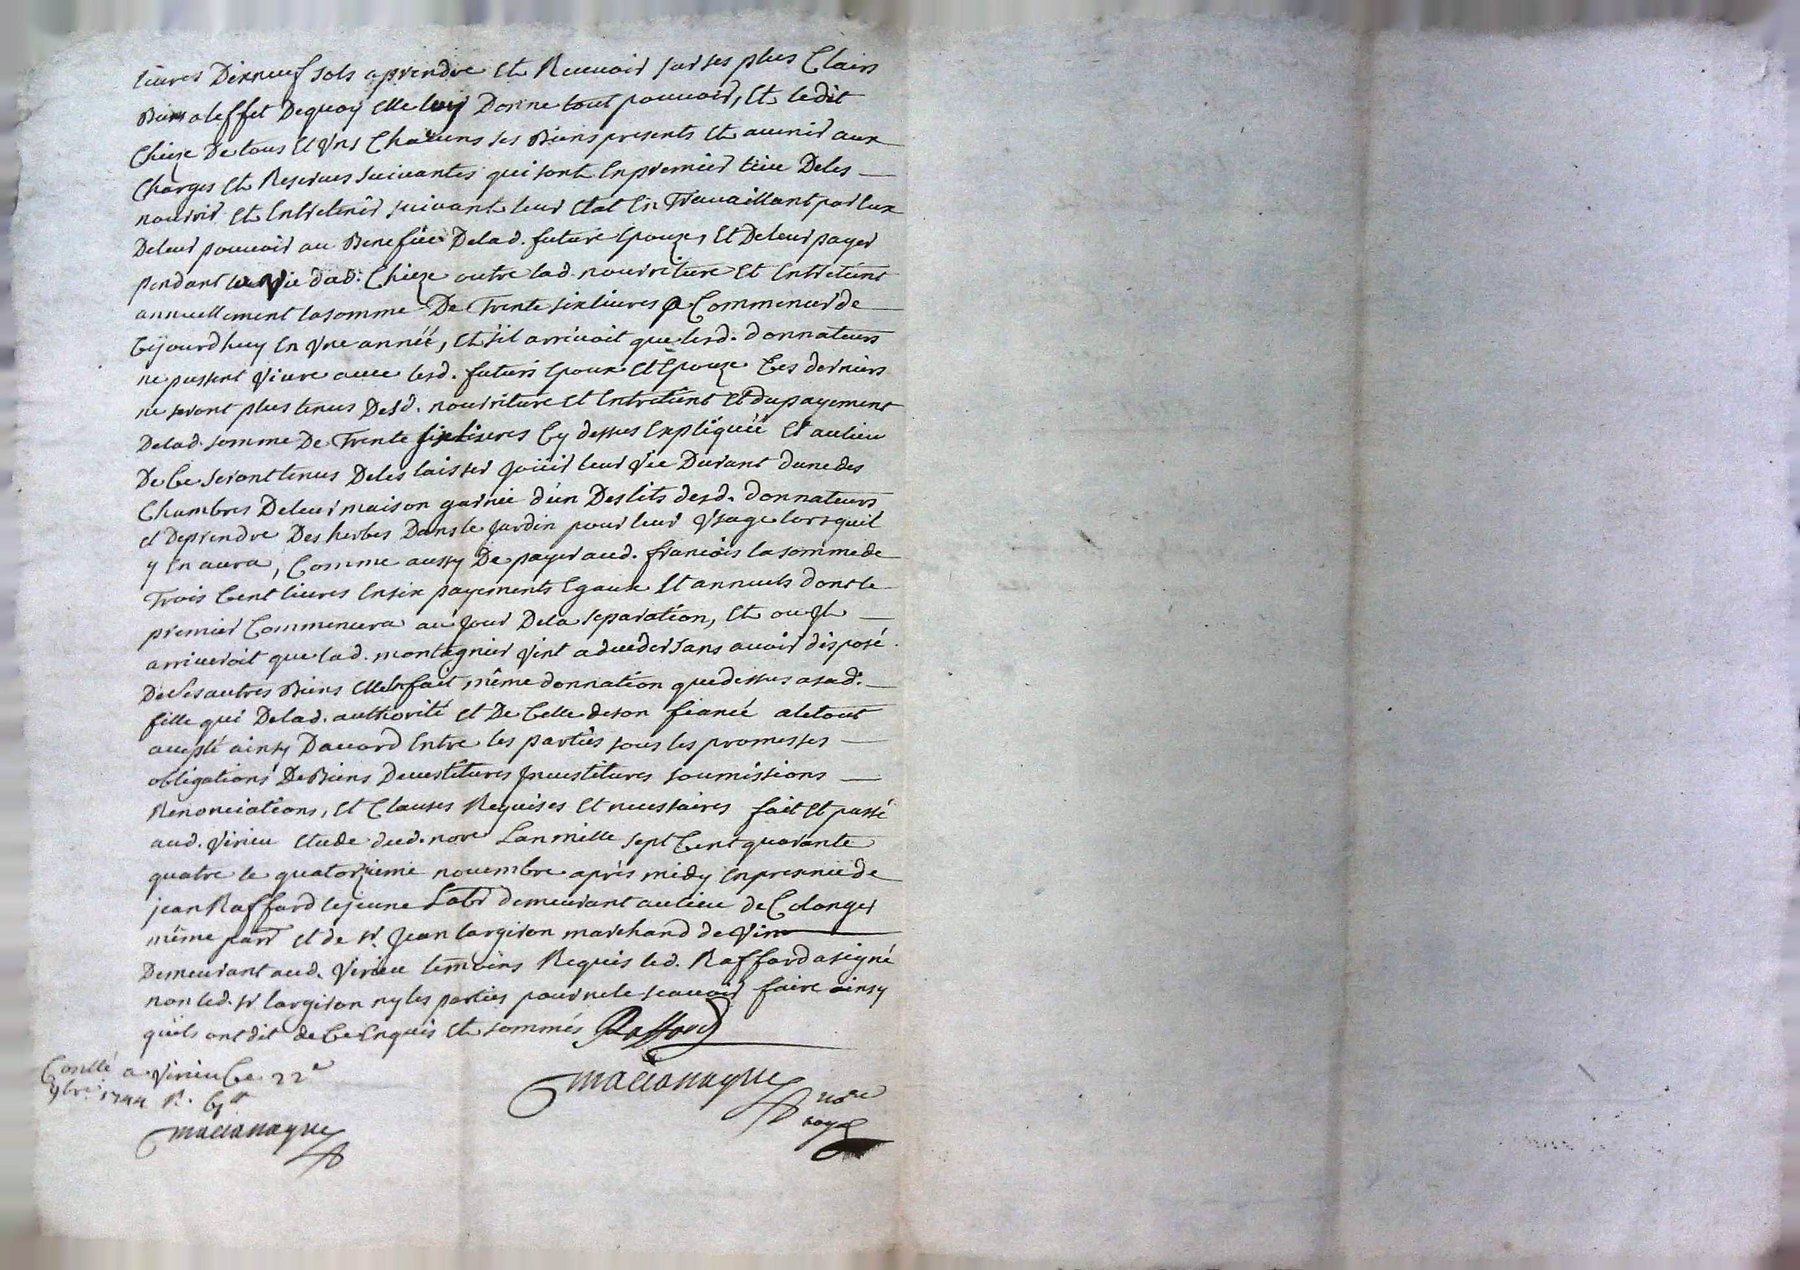 livres Dixneuf sols aprendre et Recevoir sur ses plus Clairs
Biens aleffet Dequoy Elle luy Donne tout pouvoir, Et ledit
Chieze De tous et Uns Chacuns ses Biens presents et avenir aux
Charges et Reserves suivantes qui sont Enpremier lieu Deles
nourrir et Entretenir suivant leur Etat En Travaillant par Eux
Deleur pouvoir au Benefice Delad. future Epouze, Et Deleur payer
pendant la Vie dud. Chieze outre lad. nourriture Et Entretient
annuellement lasomme De Trente six livres a Commencer de
Cejourdhuy En Une année, Et s'il arrivoit que lesd. donnateurs
ne pussent Vivre avec lesd. futurs Epoux Et Epouze Ces derniers
ne seront plus tenus Desd. nourriture Et Entretient Et dupayement
Delad. somme De Trente six livres Cy dessus Expliquéé Et aulieu
De Ce seront tenus Deles laisser Joüir leur Vie Durant dune des
Chambres Deleur maison garnie d'un Des lits desd. donnateurs
et Deprendre Des herbes Dans le Jardin pour leur Usage lorsquil
y En aura, Comme aussy De payer aud. francois la somme de
Trois Cent livres En six payements Egaux Et annuels dont le
premier Commencera au Jour Dela separation, Et ou Jl
arriveroit que lad. montagnier Vint a deceder sans avoir disposé
De ses autres Biens Elle fait même donnation que dessus a sad.
fille qui Delad. authorité et De Celle deson fiancé a letout
accepté ainsy Daccord Entre les parties sous les promesses
obligations De Biens Devestitures Jnvestitures soumissions
Renonciations, et Clauses Requises Et necessaires fait Et passé
aud. Virieu Etude dud. nore Lan mille sept Cent quarante
quatre le quatorzieme novembre après midy En presence de
jean Raffard lejeune Labr demeurant aulieu de Colanges
même parr et de sr. Jean largiron marchand de Vin
Demeurant aud. Virieu temoins Requis led. Raffard a signé
non led. sr largiron ny les parties pour ne le scavoir faire ainsy
quils ont dit de Ce Enquis Et sommés Raffard
Conllé a Virieu Ce 22e
9bre 1744 R.
nore
royal